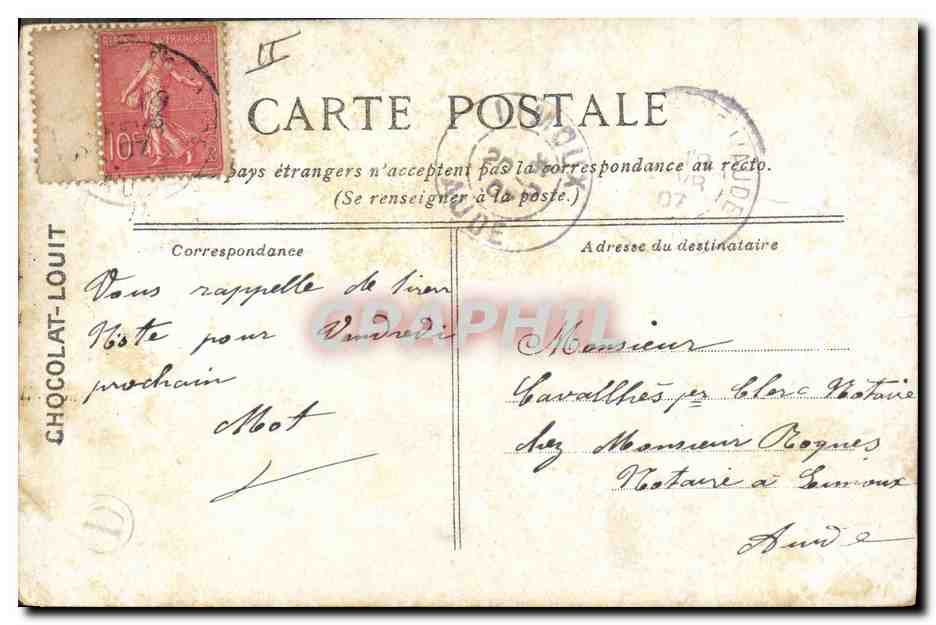 REPUBLIQUE FRANÇAISE
10
II
CARTE POSTALE
pays étrangers n'acceptent pas la correspondance au recto.
(Se renseigner à la poste.)
LIMOUX
20
07
AUDE
07
AUDE
CHOCOLAT-LOUIT
Correspondance
Vous rappelle de
Note pour Vandredi
prochain
Mot
D
CPAPHIL
Adresse du destinataire
Monsieur
Cavailhès pr Clerc Notaire
chez Monsieur Roques
Notaire à Limoux
Aude